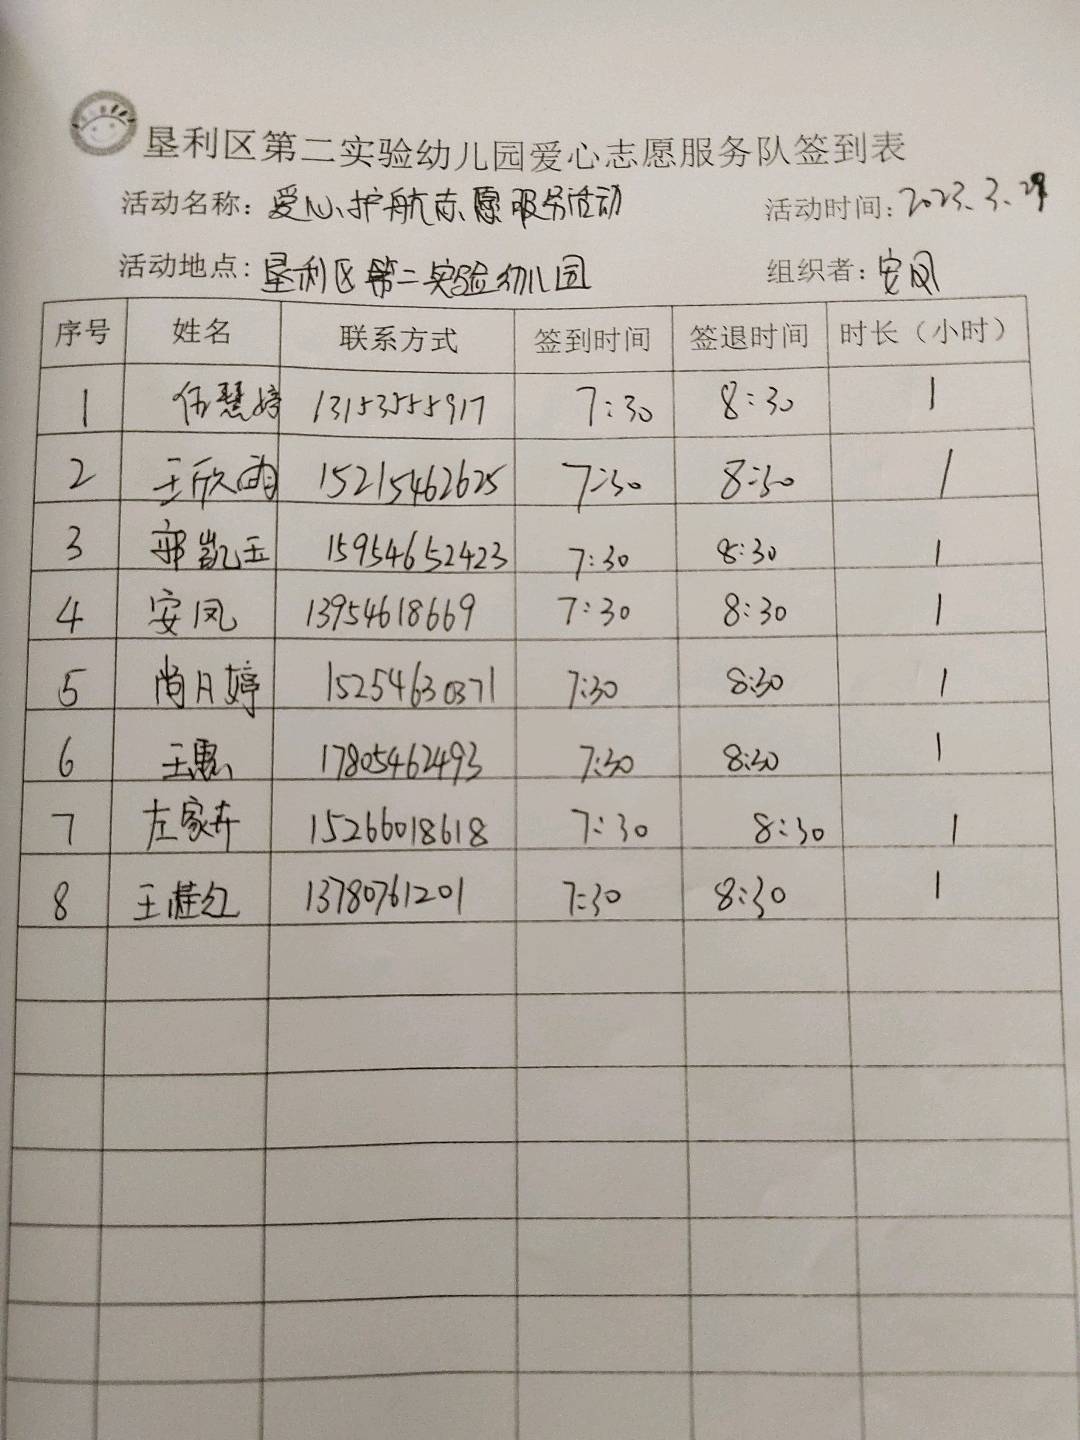 垦利区第二实验幼儿园爱心志愿服务队签到表
活动名称：爱心护航志愿服务活动 活动时间：2023.3.29
活动地点：垦利区第二实验幼儿园 组织者：安凤
序号 姓名 联系方式 签到时间 签退时间 时长（小时）
1 任慧婷 13153555917 7:30 8:30 1
2 王欣雨 15215462625 7:30 8:30 1
3 郭凯玉 15954652423 7:30 8:30 1
4 安凤 13954618669 7:30 8:30 1
5 尚月婷 15254630371 7:30 8:30 1
6 王惠 17805462493 7:30 8:30 1
7 左家卉 15266018618 7:30 8:30 1
8 13780761201 7:30 8:30 1